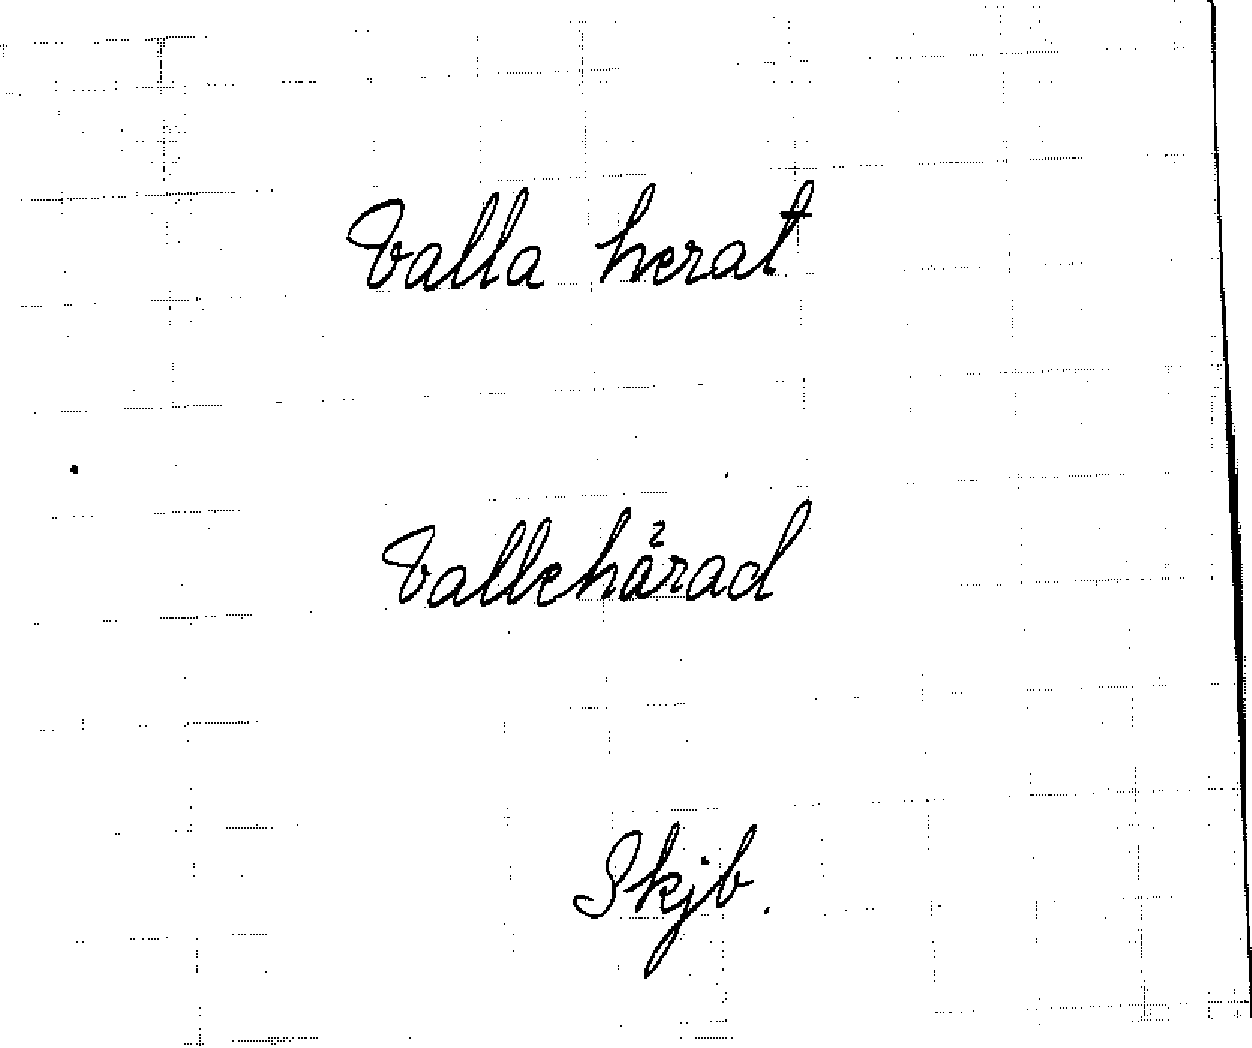 Valla herat
Vallehärad
Skjb.